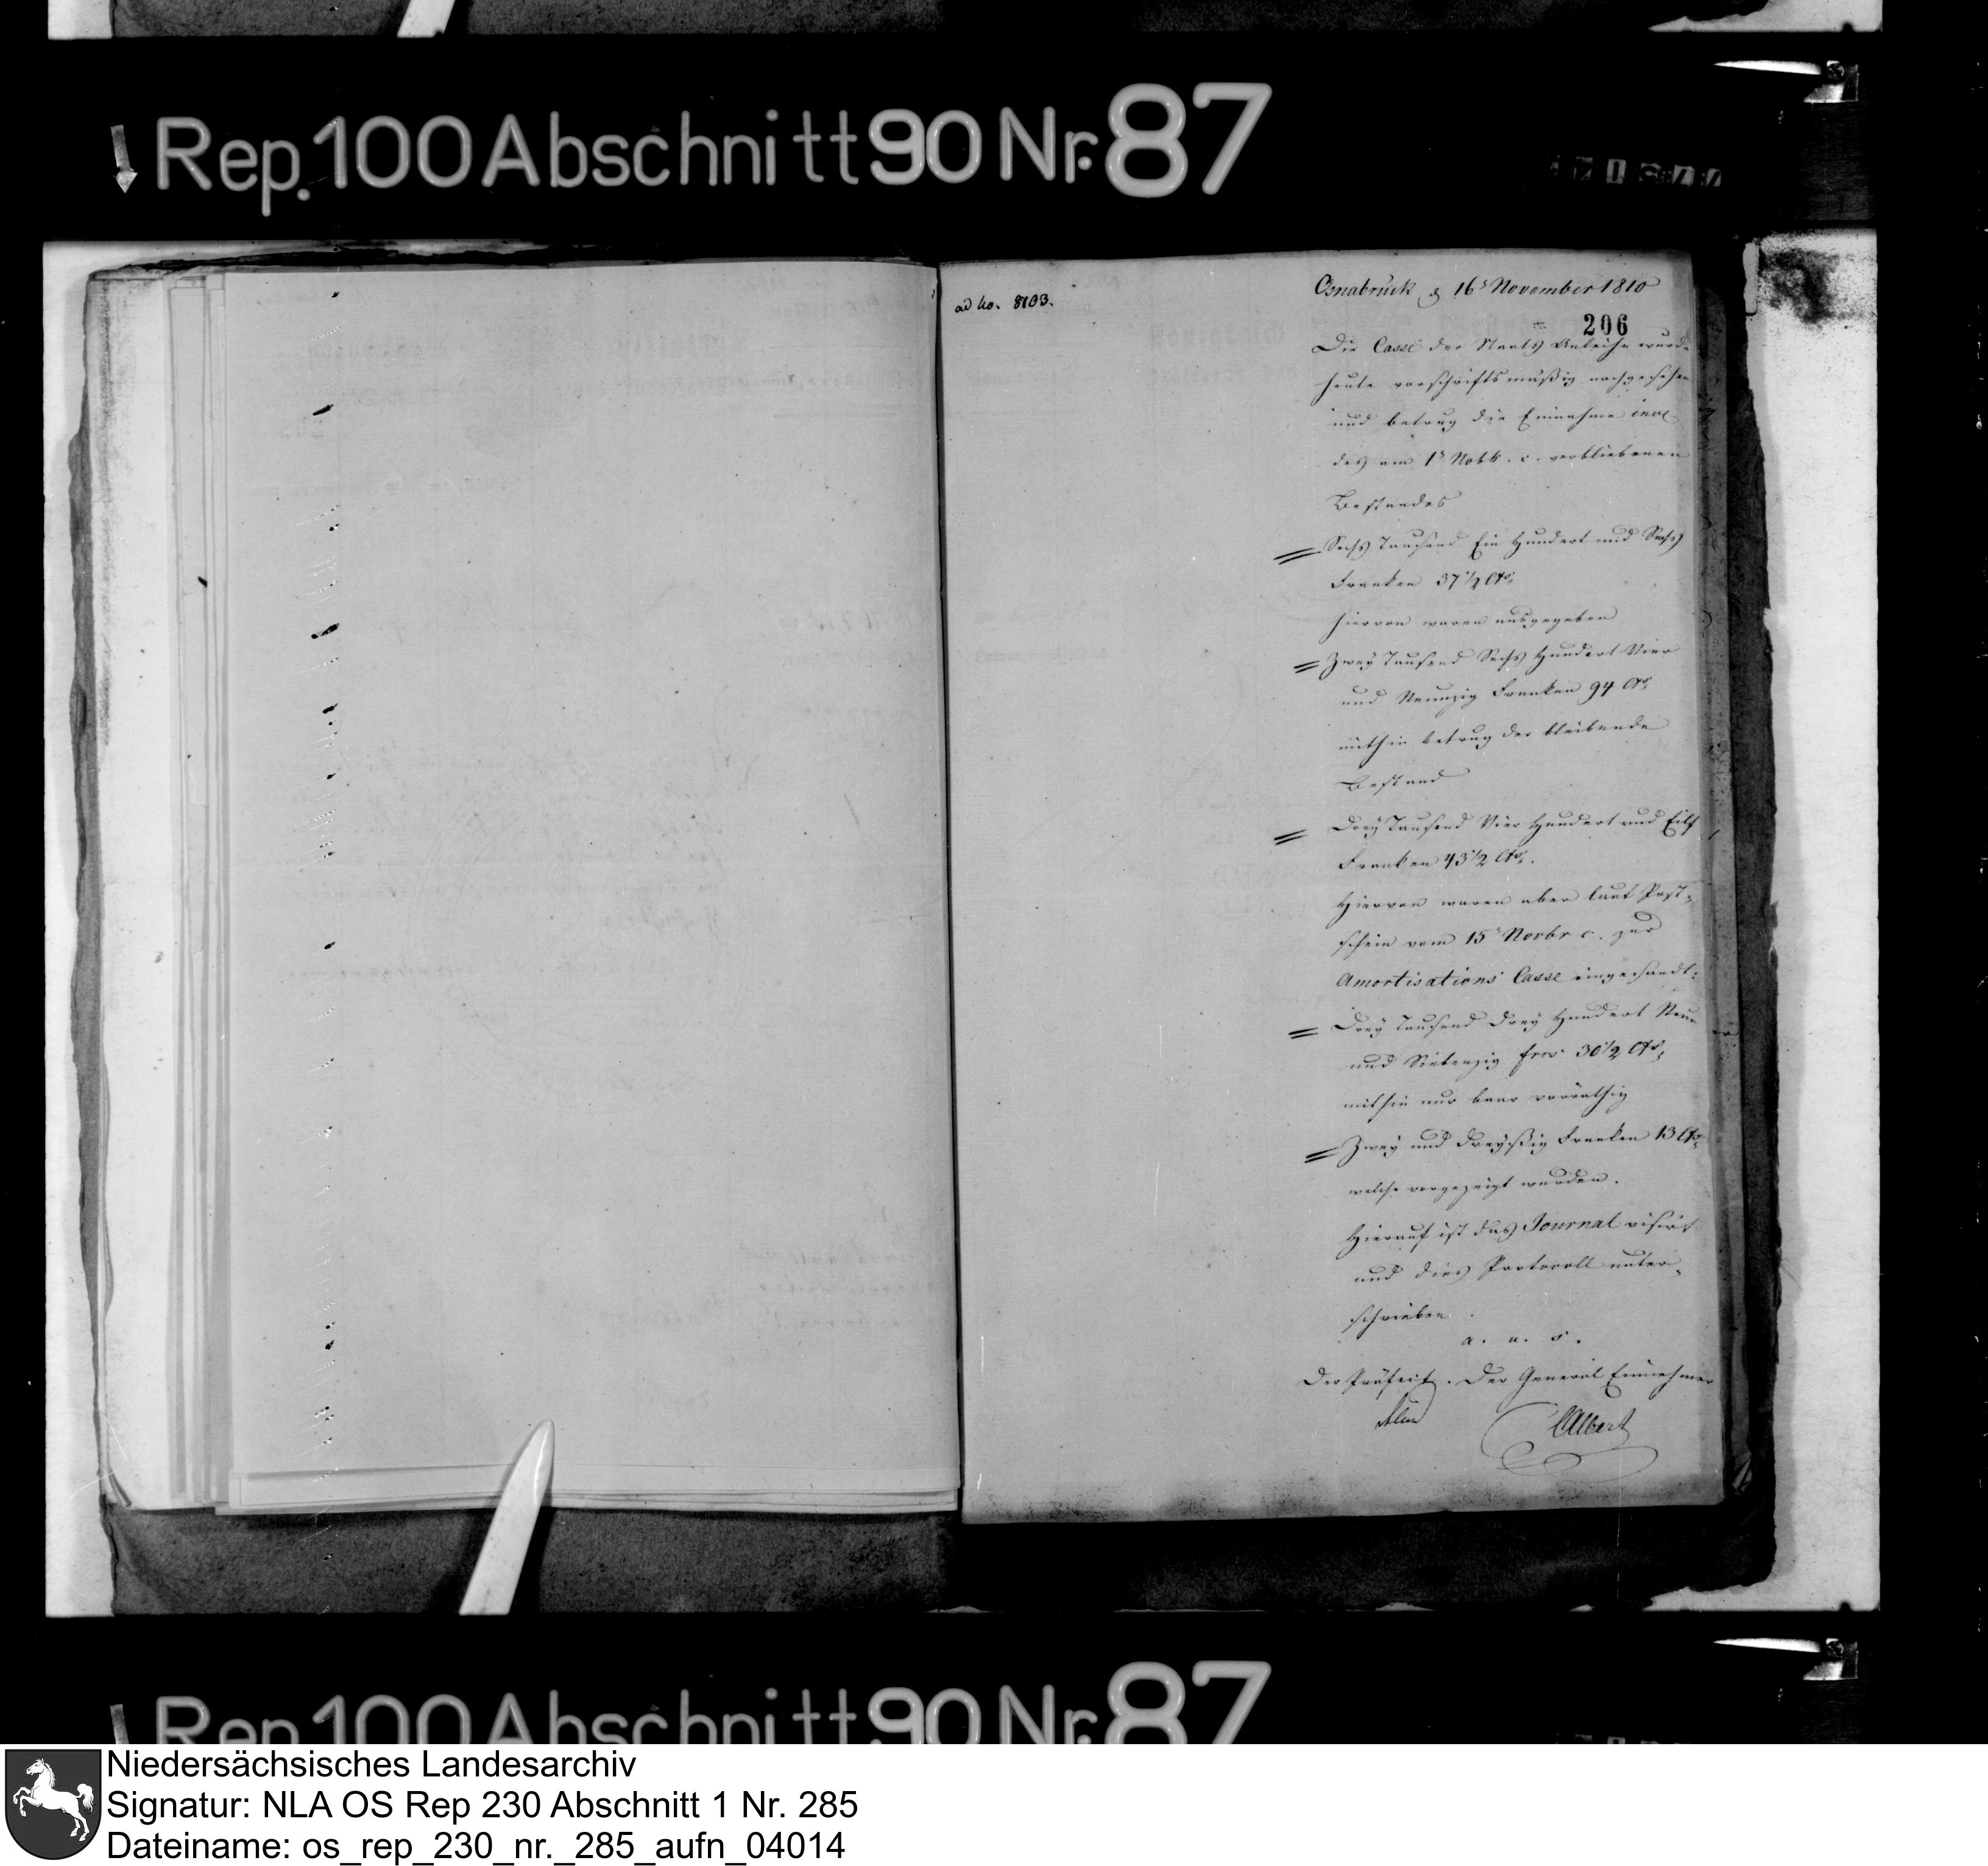 Rep. 100 Abschnitt 90 Nr. 87
ad no. 8103.
Osnabrück d 16t November 1810
206
Die Casse der Staats Anleihe wurde
heute vorschriftsmäßig nachgesehen
und betrug die Einnahme incl
des am 1t Nobb. c. verbliebenen
Bestandes
= Sechs Tausend Ein Hundert und Sechs
Franken 37 1/2 Cts.
hiervon waren ausgegeben
= Zwey Tausend Sechs Hundert Vier
und Neunzig Franken 94 Cts.
mithin betrug der bleibende
Bestand
= Drey Tausend Vier Hundert und Eilf
Franken 43 1/2 Cts.
Hiervon waren aber laut Post-
schein vom 15t Novbr c. zur
Amortisations Casse eingesandt:
= Drey Tausend Drey Hundert Neun
und Siebenzig frcs 30 1/2 Cts.
mithin nur baar vorräthig
= Zwey und Dreyßig Franken 13 Cts.
welche vorgezeigt wurden.
Hierauf ist das Journal visirt
und dies Protocoll unter-
schrieben.
a. u. s.
Der Präfect. Der General Einnehmer
Albert
Rep. 100 Abschnitt 90 Nr. 87
Niedersächsisches Landesarchiv
Signatur: NLA OS Rep 230 Abschnitt 1 Nr. 285
Dateiname: os_rep_230_nr._285_aufn_04014